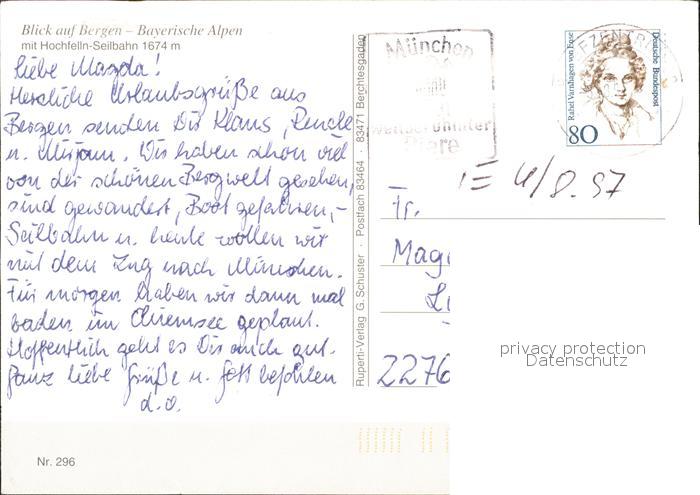 Blick auf Bergen – Bayerische Alpen
mit Hochfelln-Seilbahn 1674 m
Liebe Magda!
Herzliche Urlaubsgrüße aus
Bergen senden Dir Klaus, Renate
u. Mirjam. Wir haben schon viel
von der schönen Bergwelt gesehen,
sind gewandert, Boot gefahren,-
Seilbahn u. heute wollen wir
mit dem Zug nach München.
Für morgen haben wir dann mal
baden im Chiemsee geplant.
Hoffentlich geht es Dir auch gut.
Ganz liebe Grüße u. Gott befohlen
d.o.
Nr. 296
Ruperti-Verlag G. Schuster · Postfach 83464 · 83471 Berchtesgaden
München
weltberühmter
Biere
BRIEFZENTRUM
Rahel Varnhagen von Ense
Deutsche Bundespost
80
E 4/8.97
Fr.
Mag
Li
2276
privacy protection
Datenschutz